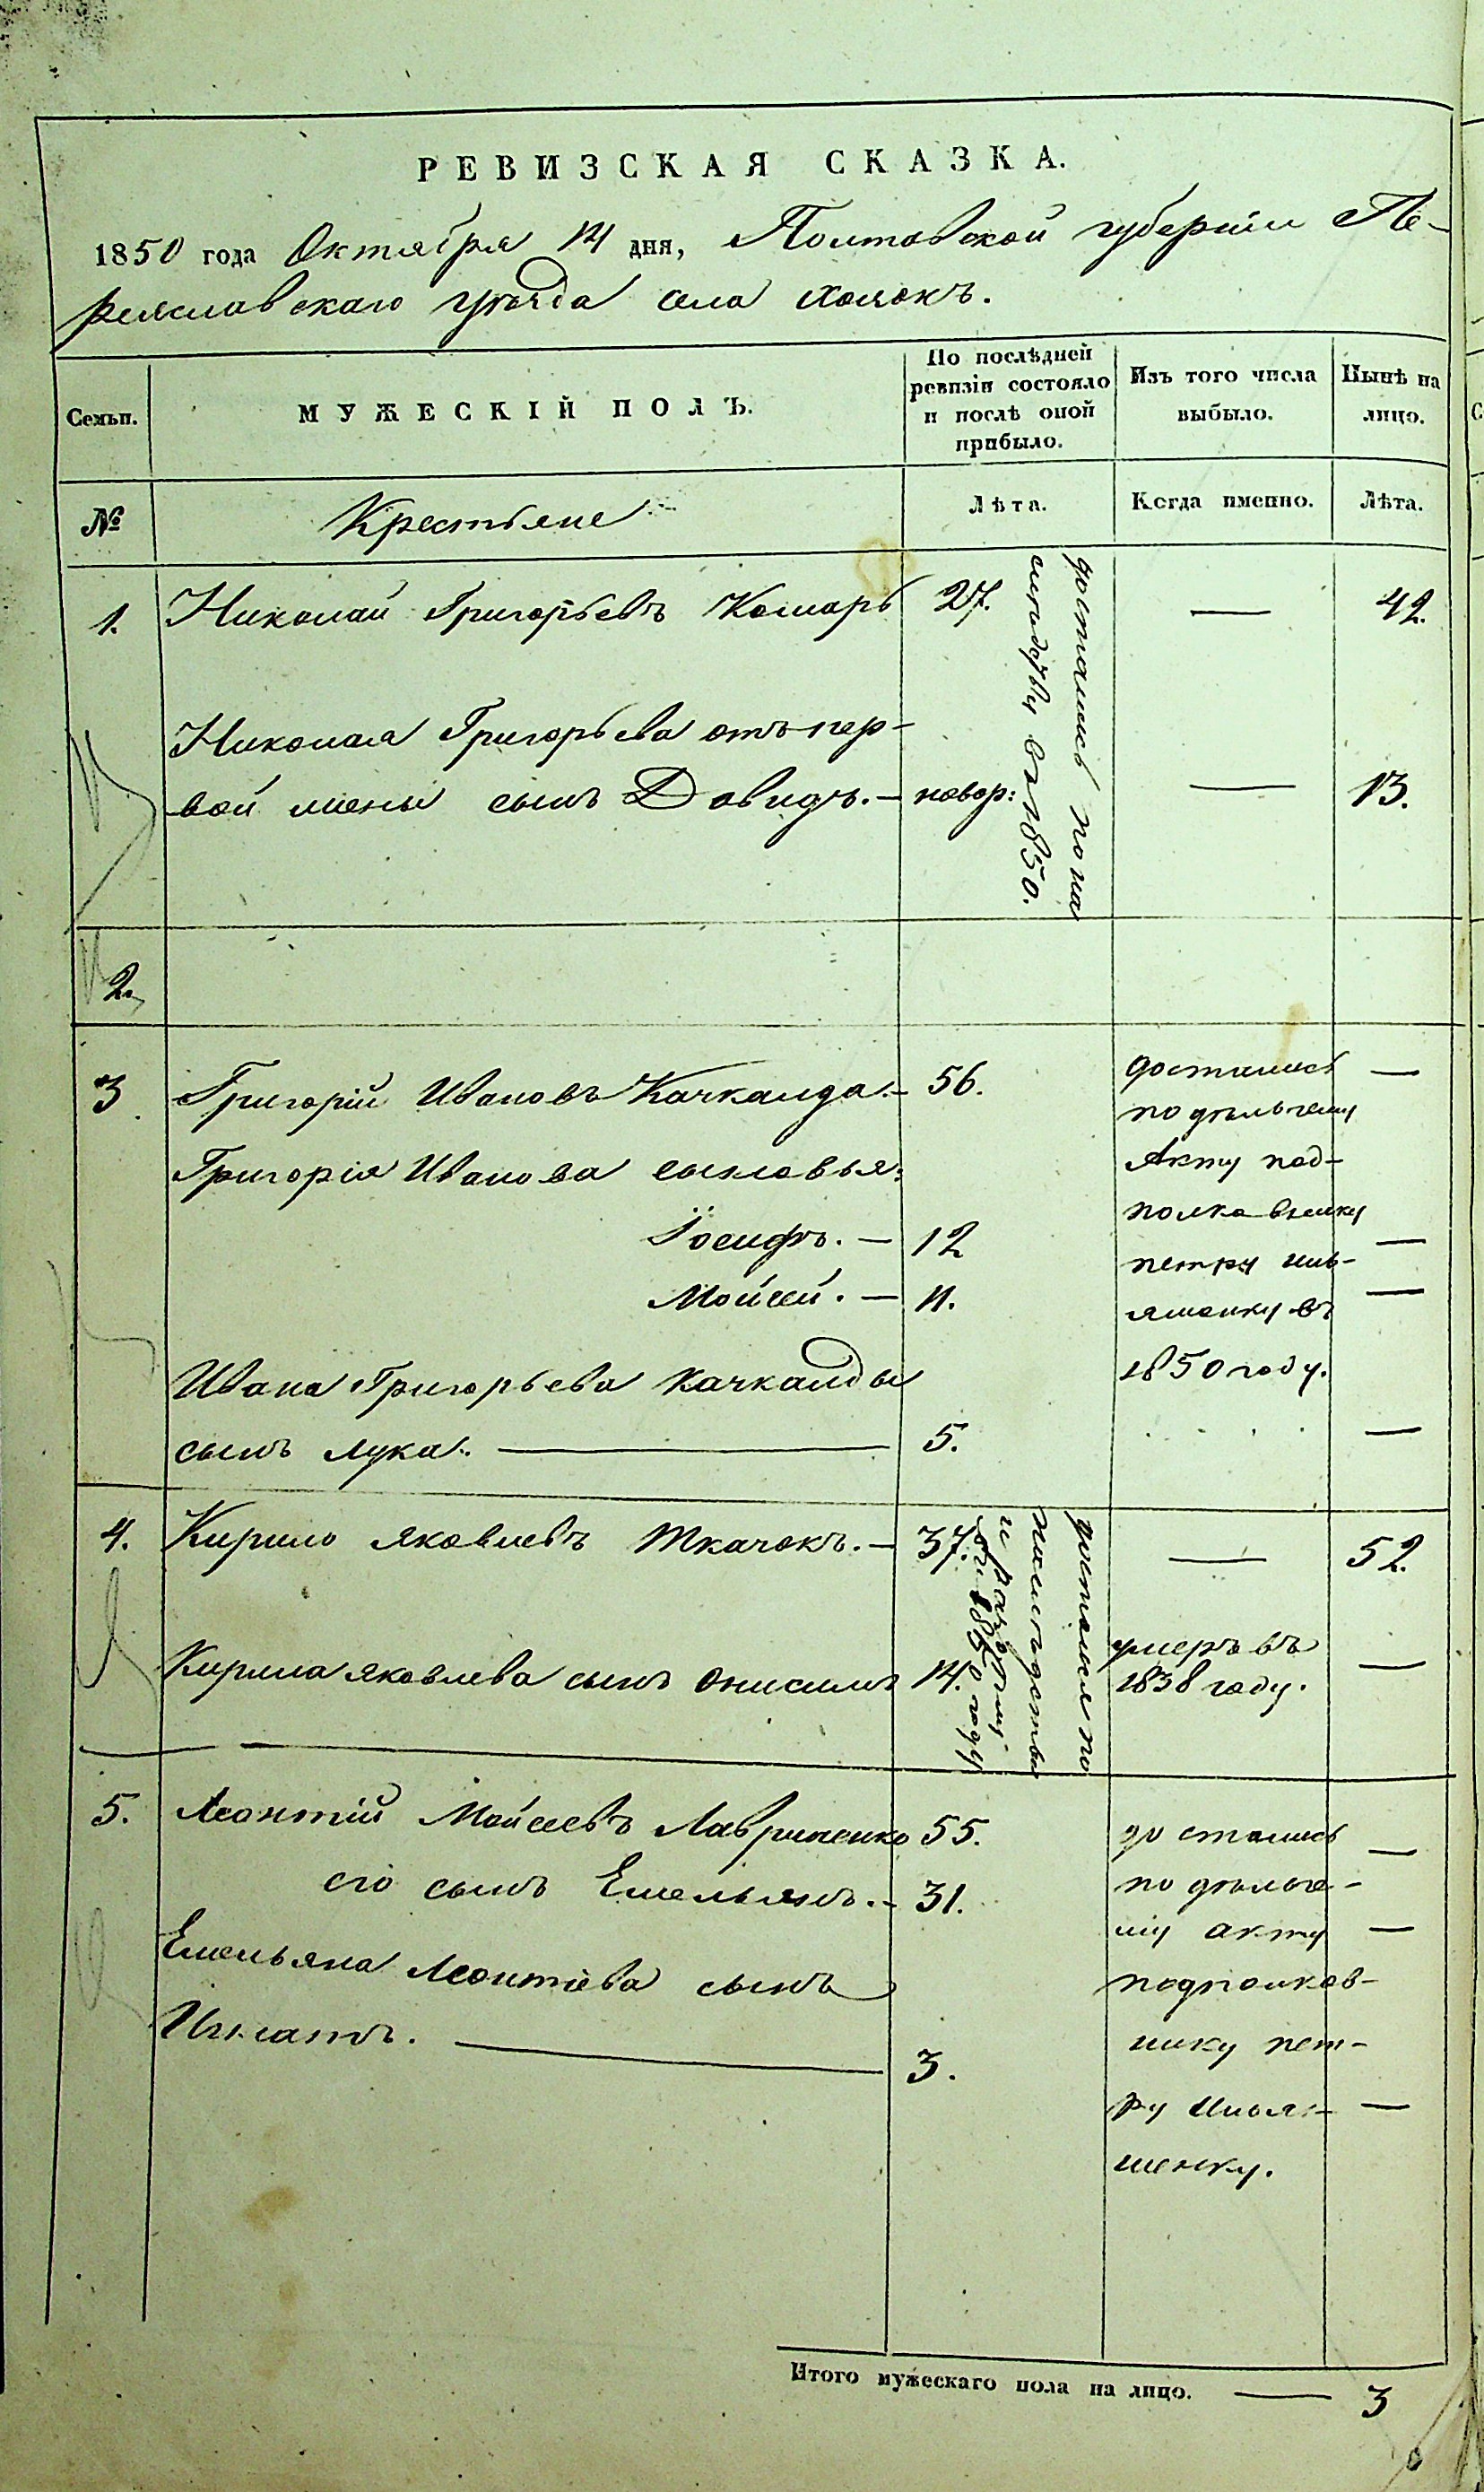 РЕВИЗСКАЯ СКАЗКА.
1850 года Октября 14 дня, Полтавской губернии Пе-
реяславскаго уѣзда села Хоцокъ.
Семьи.
МУЖЕСКІЙ ПОЛЪ.
По послѣдней
ревизіи состояло
и послѣ оной
прибыло.
Изъ того числа
выбыло.
Нынѣ на
лицо.
№
Крестьяне
Лѣта.
Когда именно.
Лѣта.
1. Николай Григорьевъ Комарь 27. — 42.
Николая Григорьева отъ пер-
вой жены сынъ Давидъ. — новор: — 13.
достались по на
слѣдству въ 1850.
2.
3 Григорій Ивановъ Качкалда. — 56. достались —
по дѣльчему
Григорія Иванова сыновья: Акту под-
полковнику
Іосифъ. — 12 —
Петру Иль-
Мойсей. — 11. —
яшенку въ
Ивана Григорьева Качкалды 1850 году.
сынъ Лука. — 5. —
4. Кирило Яковлевъ Ткачокъ. — 37. — 52.
Кирила Яковлева сынъ Онисимъ 14. умеръ въ —
1838 году.
достался по
наслѣдству
и раздѣлу
1850 году
5. Леонтій Мойсеевъ Лавриненко 55. достались —
его сынъ Емельянъ. — 31. по дѣльче-
му акту —
Емельяна Леонтіева сынъ подполков-
Игнатъ. — 3. нику Пет-
ру Илья- —
шенку.
Итого мужескаго пола на лицо. — 3